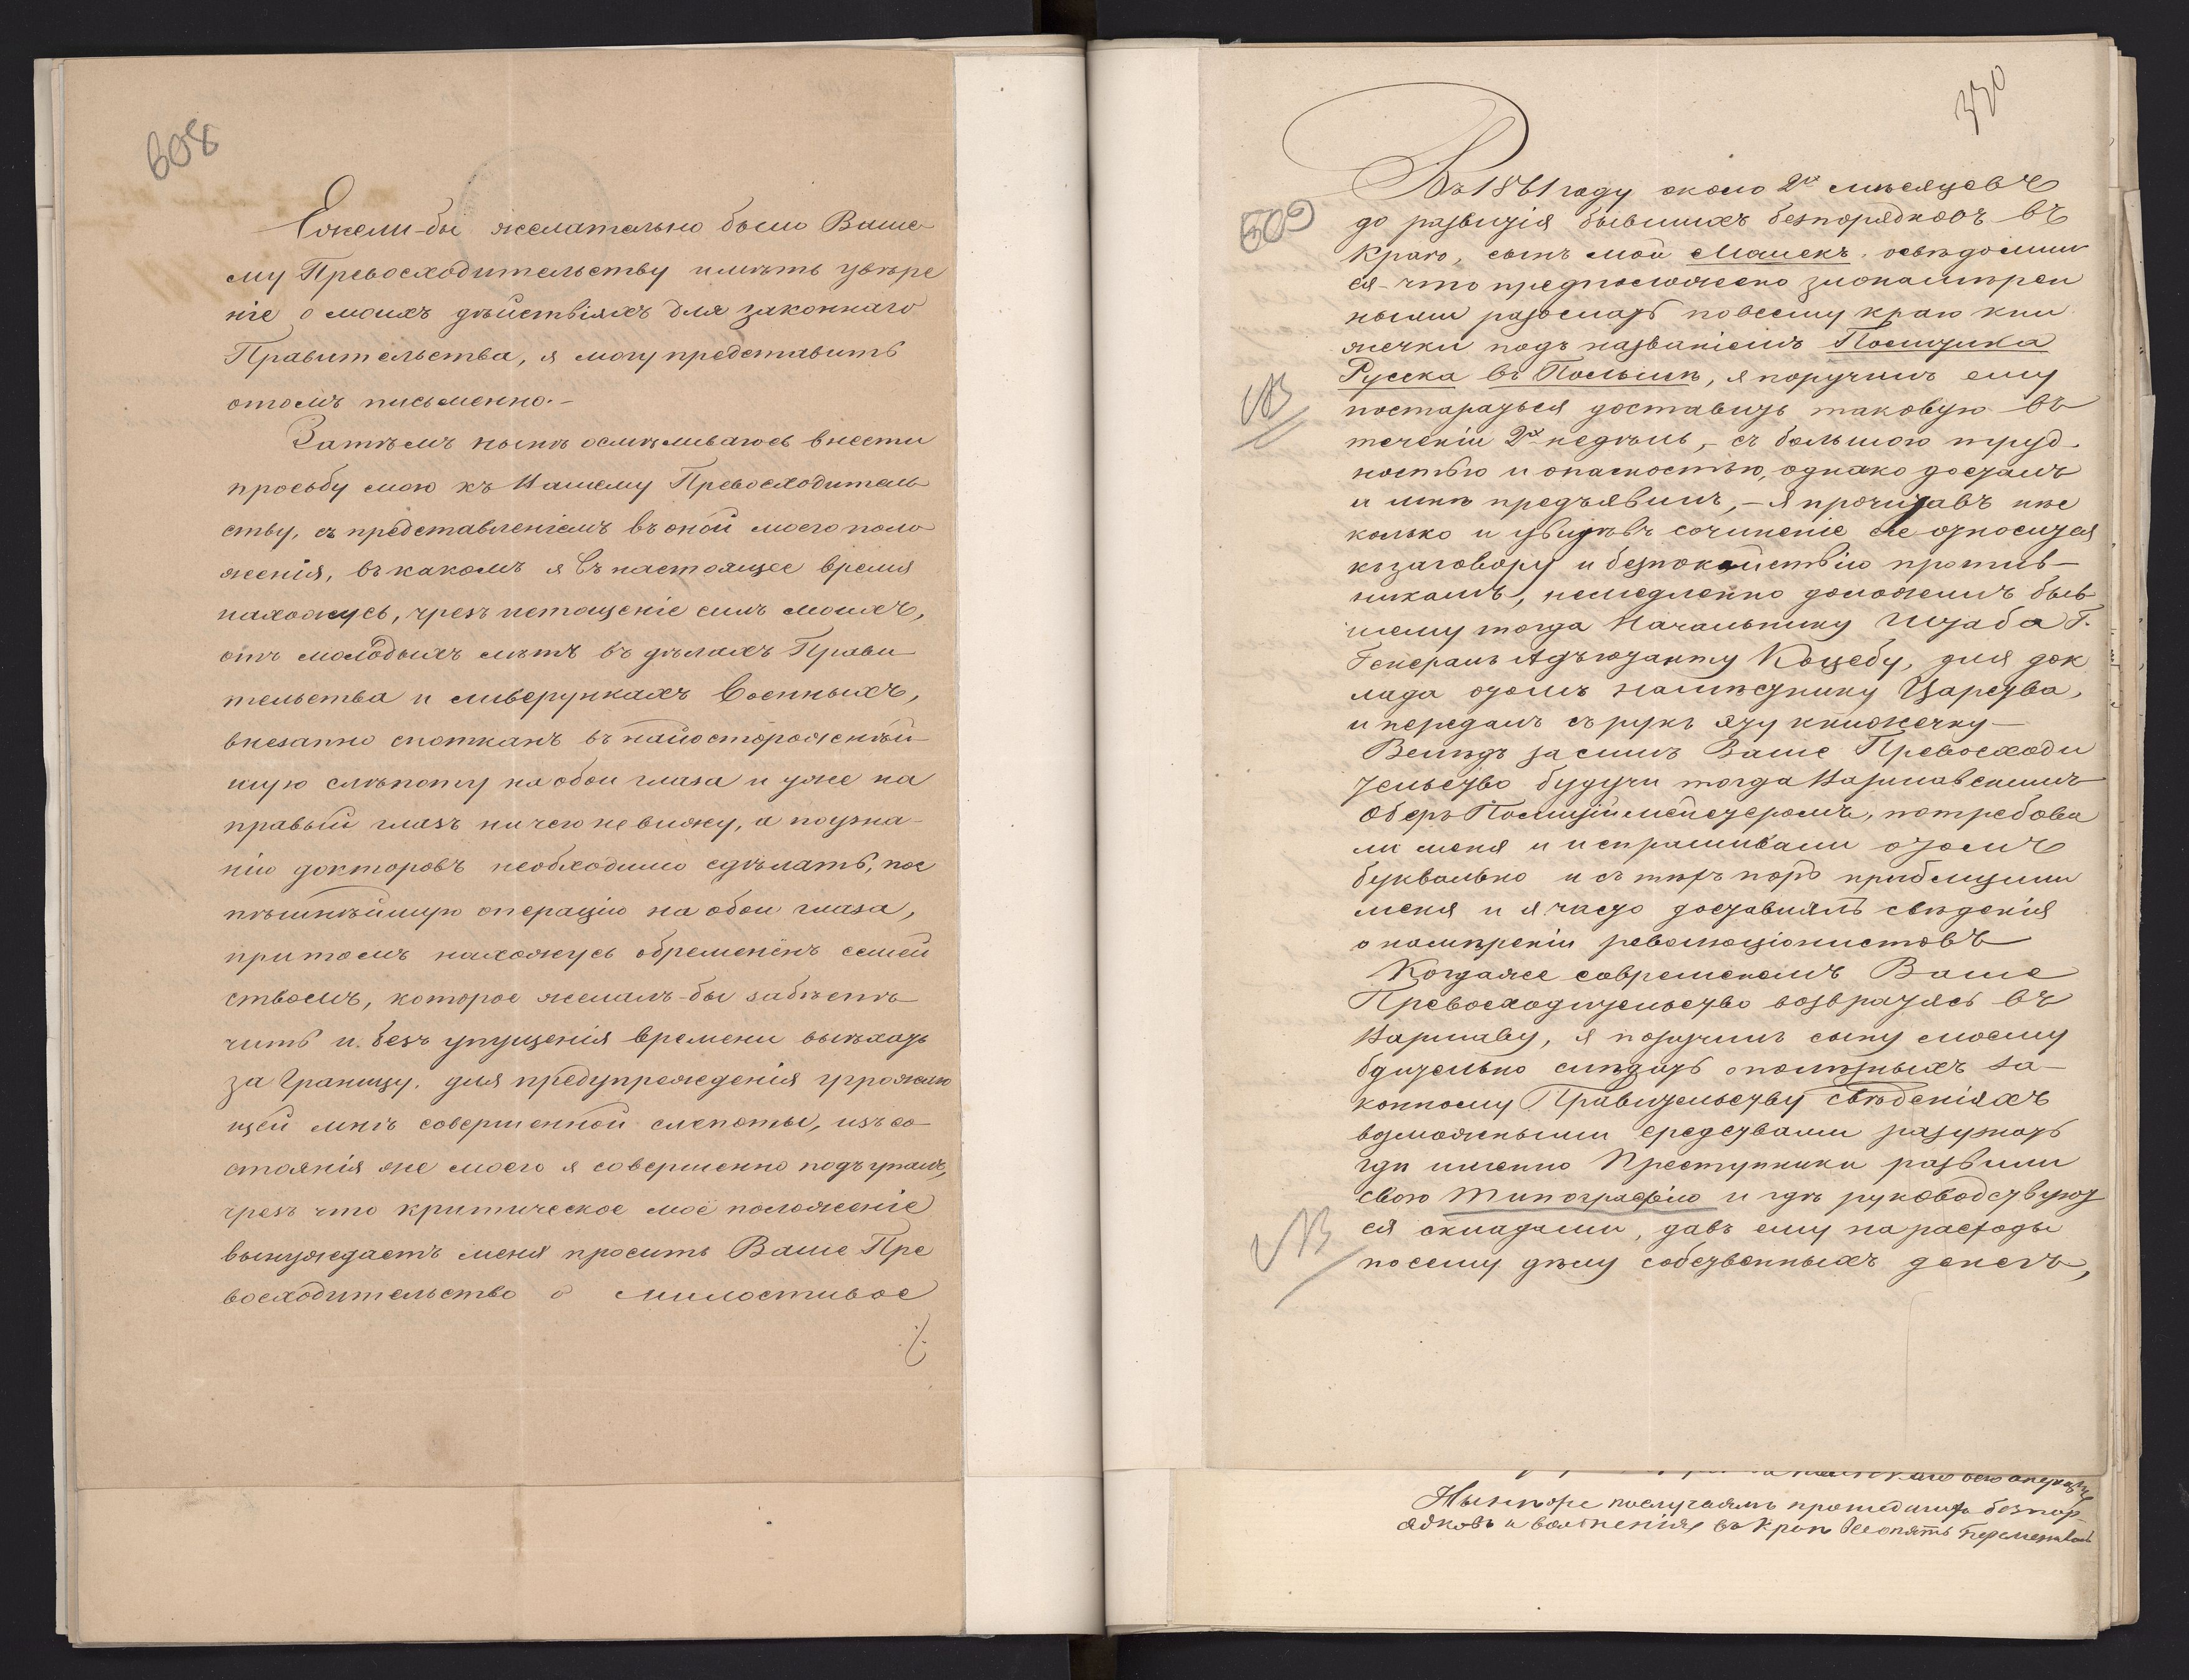 608
Ежели-бы желательно было Ваше
му Превосходительству имѣть увѣре
ніе о моихъ дѣйствіяхъ для законнаго
Правительства, я могу представить
отомъ письменно.-
Затѣмъ нынѣ осмѣливаюсь внести
просьбу мою къ Вашему Превосходитель
ству, съ представленіемъ въ оной моего поло
женія, въ какомъ я въ настоящее время
нахожусь, чрезъ истощеніе силъ моихъ,
отъ молодыхъ лѣтъ въ дѣлахъ Прави
тельства и ливерункахъ Военныхъ,
внезапно спотканъ въ найосторожнѣй
шую слѣпоту на обои глаза и уже на
правый глазъ ничего не вижу, а поузна-
нію докторовъ необходимо сдѣлать, пос
пѣшнѣйшую операцію на обои глаза,
притомъ нахожусь обремененъ семей
ствомъ, которое желалъ-бы забѣспѣ
чить и безъ упущенія времени выѣхать
за Границу, для предупрежденія угрожаю
щей мнѣ совершенной слепоты, изъ со-
стоянія же моего я совершенно подъупалъ,
чрезъ что критическое моё положеніе
вынуждаетъ меня просить Ваше Пре
восходительство о милостивое
·/·
330
Въ 1861 году около 2х мѣсяцевъ
609 до развитія бывшихъ безпорядковъ въ
Краю, сынъ мой Машекъ освѣдомил
ся что предположено злонамѣрен
ными разослать по всему краю кни
жечки подъ названіемъ Полищика
Русска въ Польшѣ, я поручилъ ему
NB постараться доставить таковую въ
теченіи 2х недѣль, - съ большою труд-
ностью и опасностью, однако досталъ
и мнѣ предъявилъ, - я прочитавъ нѣс
колько и увидѣвъ сочиненіе сіе относится
къ заговору и безпокойствію против-
никамъ, немедленно доложилъ быв
шему тогда Начальнику Штаба Г.
Генералъ Адъютанту Коцебу, для док
лада отомъ намѣстнику Царства,
и передалъ съ рукъ эту книжечку -
Вслѣдъ за симъ Ваше Превосходи
тельство будучи тогда Варшавскимъ
Оберъ Полиціймейстеромъ, потребова
ли меня и испрашивали отомъ
буквально и съ тѣхъ поръ приблизили
меня и я часто доставлялъ свѣденія
о намѣреніи революціонистовъ
Когдаже современемъ Ваше
Превосходительство возвратясь въ
Варшаву, я поручилъ сыну моему
бдительно слѣдить о полѣзныхъ за-
конному Правительству свѣденіяхъ
возможными средствами разузнать
гдѣ именно Преступники развили
свою типографію и гдѣ руководствуют
NB ся складами, давъ ему на расходы
по сему дѣлу собственныхъ денегъ,
Нынѣже послучаямъ прошедшихъ безпор-
ядковъ и волненія въ Краѣ